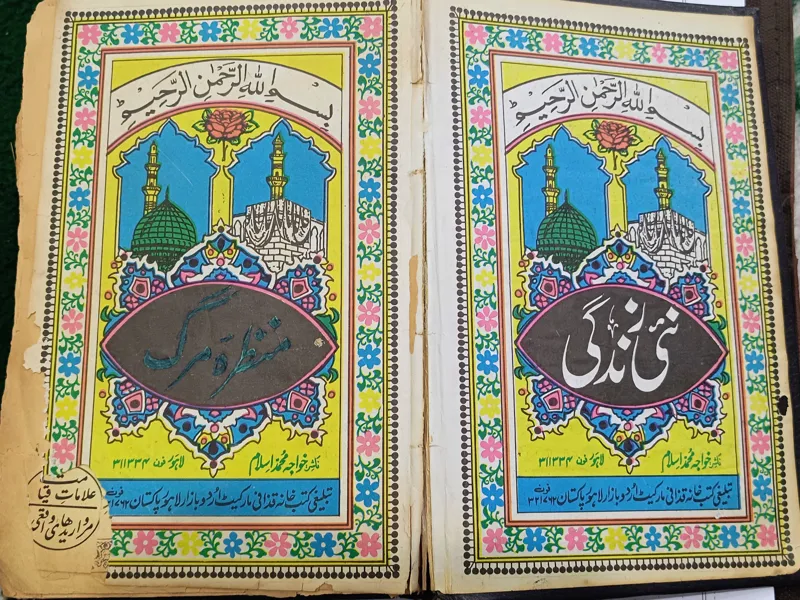 بسم اللہ الرحمن الرحیم
نئی زندگی
ناشر خواجہ محمد اسلام لاہور فون ۳۱۱۳۳۴
تبلیغی کتب خانہ قذافی مارکیٹ اردو بازار لاہور پاکستان فون ۳۲۱۴۶۲
بسم اللہ الرحمن الرحیم
منظرہ مرگ
ناشر خواجہ محمد اسلام لاہور فون ۳۱۱۳۳۴
تبلیغی کتب خانہ قذافی مارکیٹ اردو بازار لاہور پاکستان
علامات قیامت